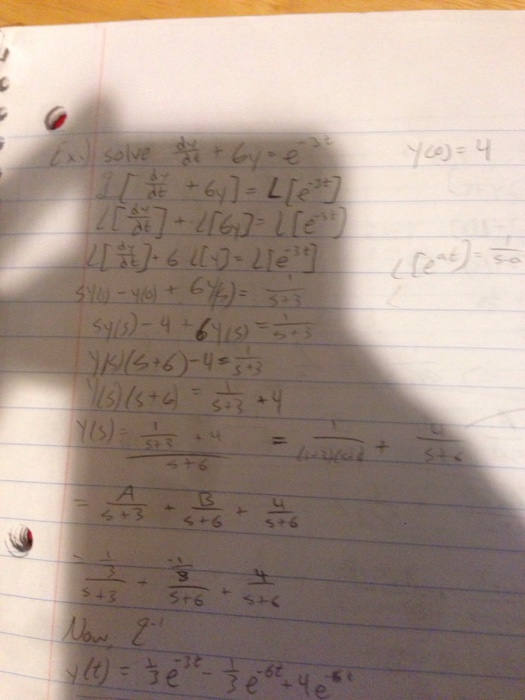 Ex.) solve dy/dt + 6y = e^-3t    y(0) = 4
L[dy/dt + 6y] = L[e^-3t]
L[dy/dt] + L[6y] = L[e^-3t]
L[dy/dt] + 6 L[y] = L[e^-3t]    L[e^at] = 1/s-a
sy(s) - y(0) + 6Y(s) = 1/s+3
sy(s) - 4 + 6Y(s) = 1/s+3
Y(s)(s+6) - 4 = 1/s+3
Y(s)(s+6) = 1/s+3 + 4
Y(s) = (1/s+3 + 4)/s+6 = 1/(s+3)(s+6) + 4/s+6
= A/s+3 + B/s+6 + 4/s+6
= 1/3/s+3 + -1/3/s+6 + 4/s+6
Now, L^-1
y(t) = 1/3 e^-3t - 1/3 e^-6t + 4e^-6t